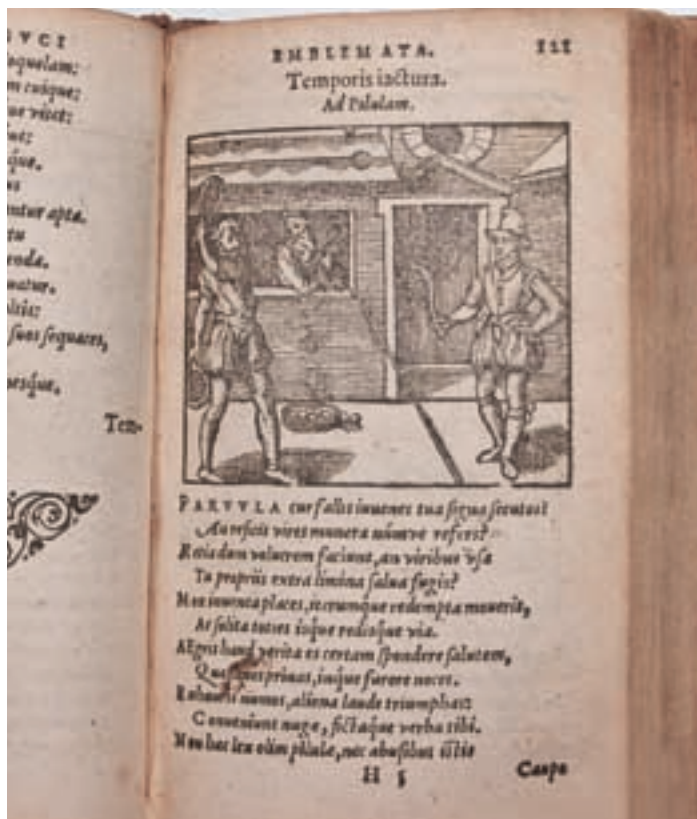 UCI
sequelam:
cuique:
viset:
que.
entur apta.
natur.
suos sequaces,
esque.
Tem-
EMBLEMATA. 121
Temporis iactura.
Ad Pilulam.
PARVVLA cur fallis iuuenes tua signa secutos?
An reficis vires munera númve refers?
Retia dum volucrem faciunt, an viribus vsa
Tu propriis extra limina salua fugis?
Mox inuenta places, iterumque redempta moueris,
Ac solita toties isque redisque via.
AEgris haud verita es certam spondere salutem,
priuas, inque furore noces.
numos, aliena laude triumphas:
Conueniunt nugæ, fictaque verba tibi.
Non hac lex olim pilulæ, nec abusibus istis
H 5 Caspe